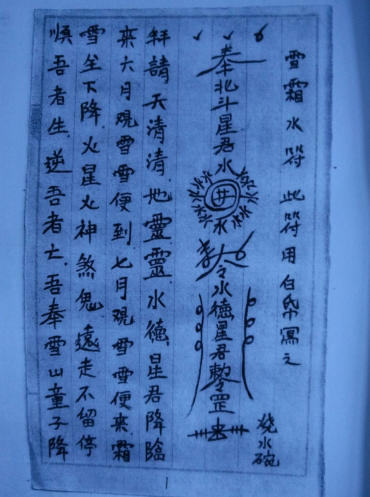 雪霜水符 此符用白帋寫之
燒水碗
奉北斗星君水
井
令水德星君
罡
拜請天清清地靈靈水德星君降臨
來六月現雪雪便到七月現雪雪便來霜
雪坐下降火星火神煞鬼遠走不留停
順吾者生逆吾者亡吾奉雪山童子降
1